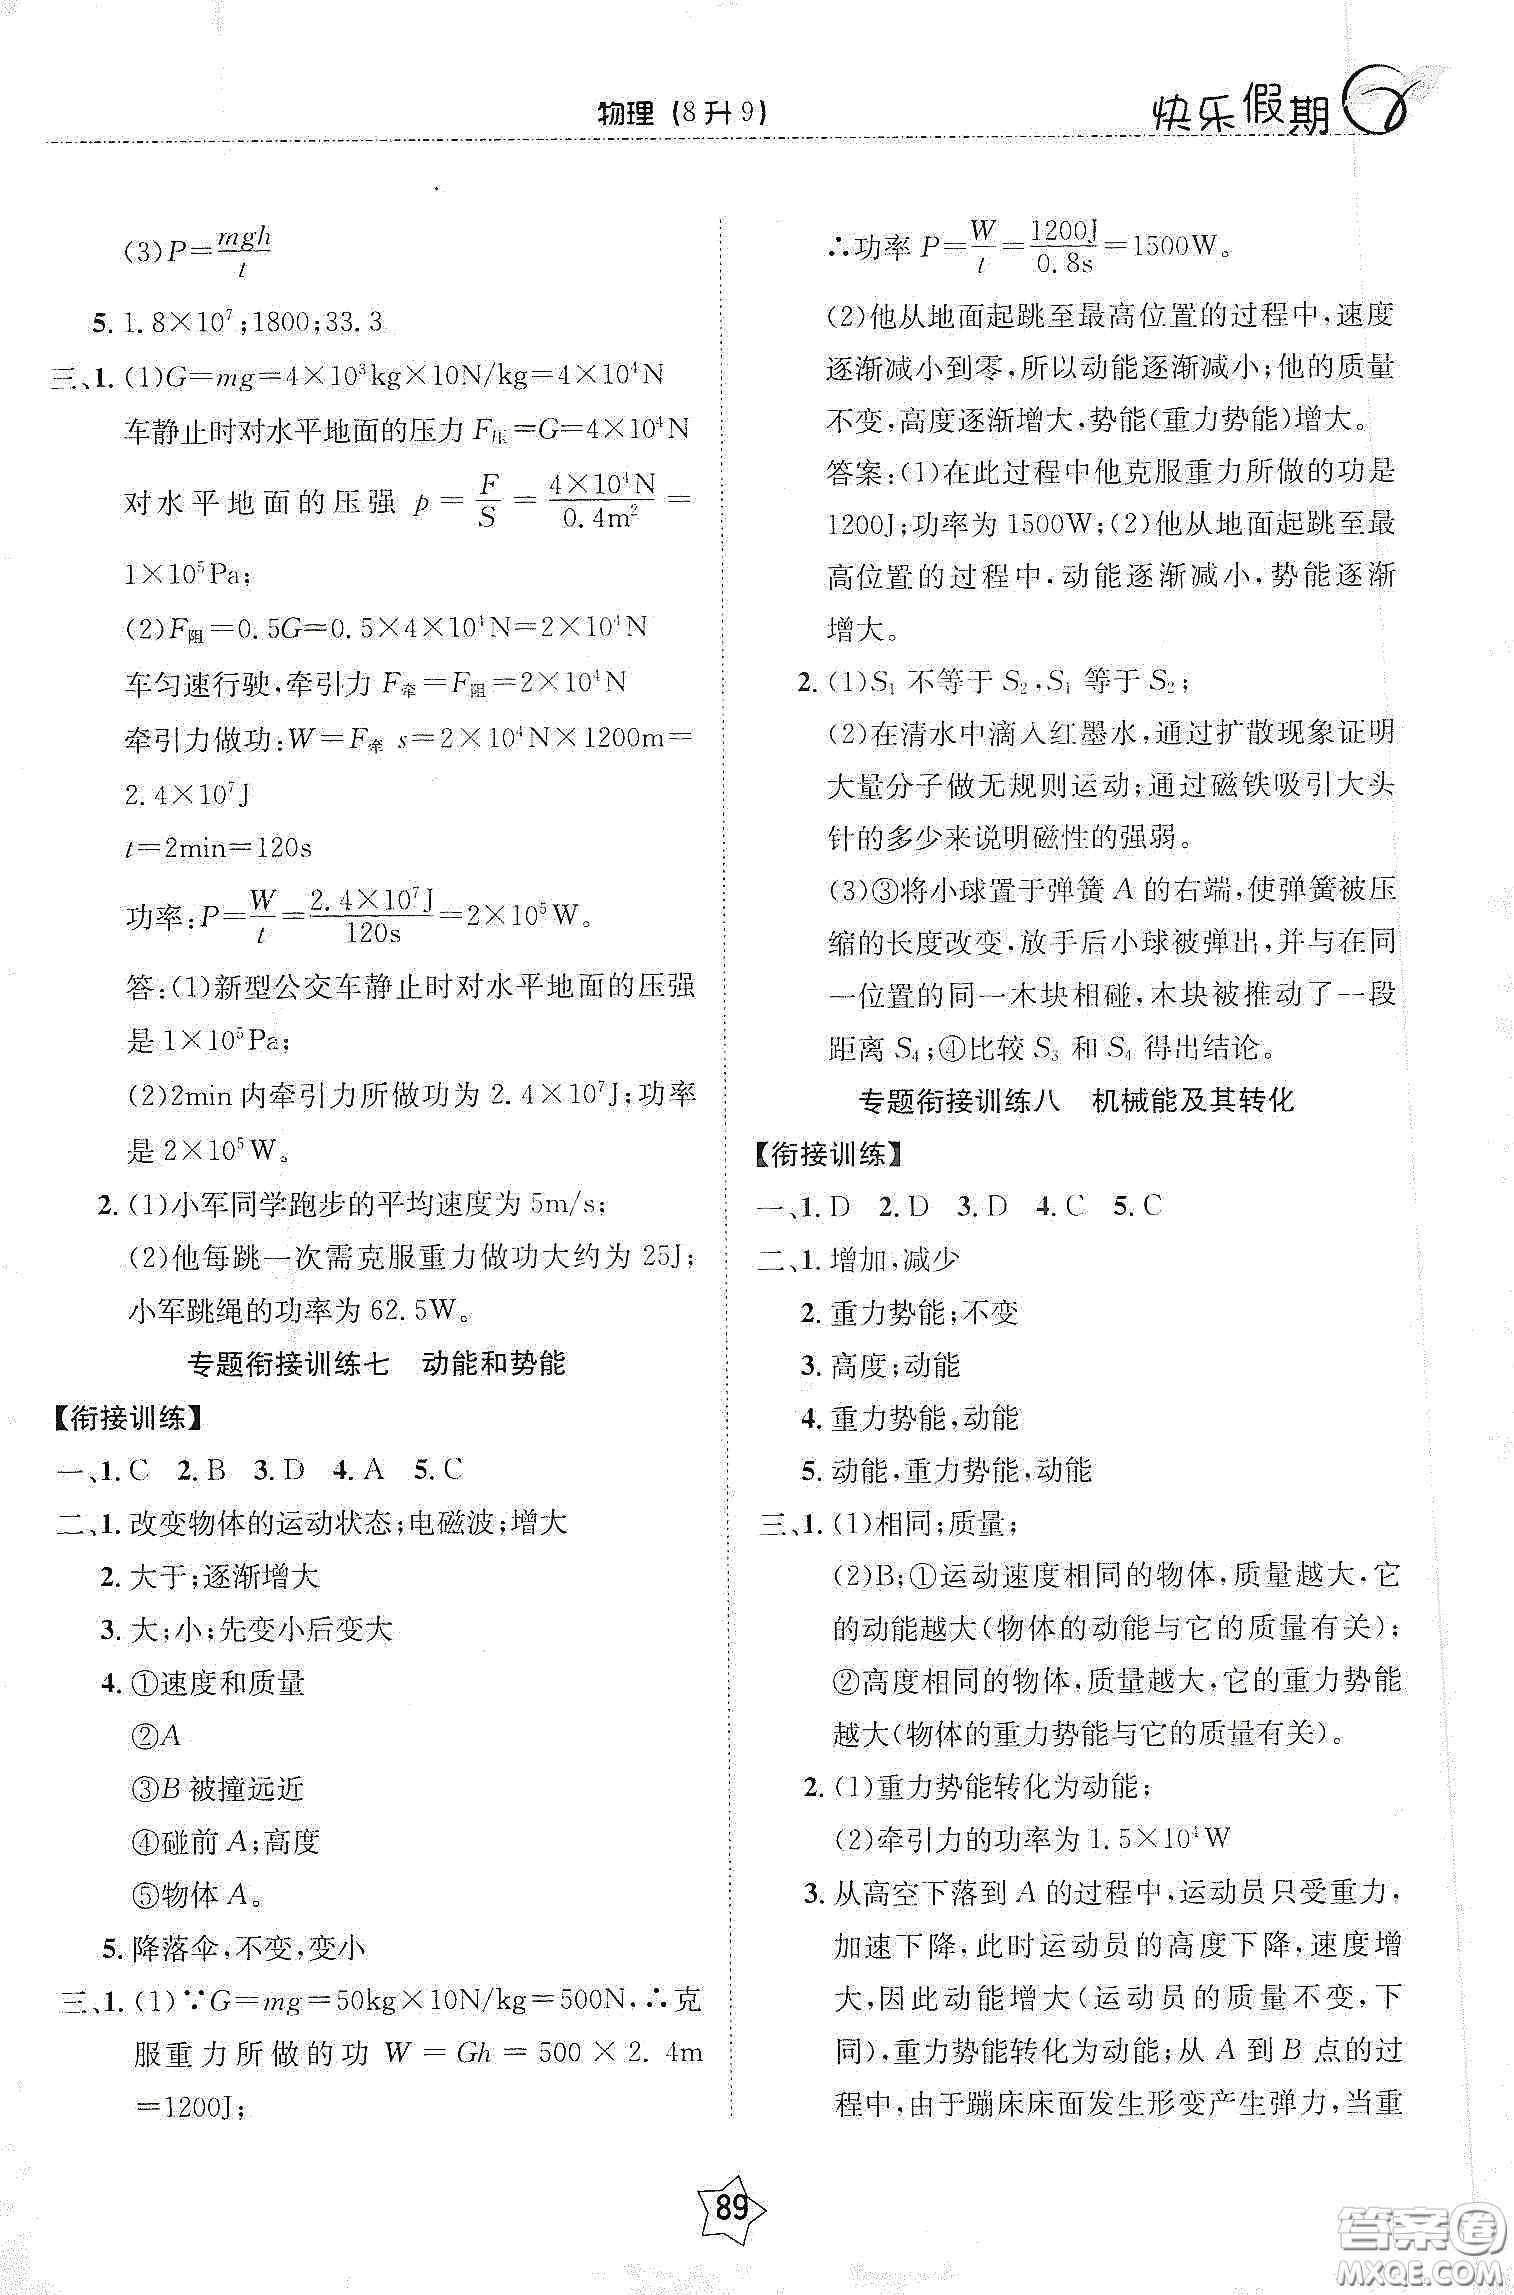 物理(8升9)
快乐假期
(3)P=mgh/t
5. 1.8×10⁷;1800;33.3
三、1. (1)G=mg=4×10³kg×10N/kg=4×10⁴N
车静止时对水平地面的压力 F压=G=4×10⁴N
对水平地面的压强 p=F/S=4×10⁴N/0.4m²=
1×10⁵Pa;
(2)F阻=0.5G=0.5×4×10⁴N=2×10⁴N
车匀速行驶,牵引力 F牵=F阻=2×10⁴N
牵引力做功:W=F牵 s=2×10⁴N×1200m=
2.4×10⁷J
t=2min=120s
功率:P=W/t=2.4×10⁷J/120s=2×10⁵W。
答:(1)新型公交车静止时对水平地面的压强
是1×10⁵Pa;
(2)2min内牵引力所做功为2.4×10⁷J;功率
是2×10⁵W。
2. (1)小军同学跑步的平均速度为5m/s;
(2)他每跳一次需克服重力做功大约为25J;
小军跳绳的功率为62.5W。
专题衔接训练七 动能和势能
【衔接训练】
一、1. C 2. B 3. D 4. A 5. C
二、1. 改变物体的运动状态;电磁波;增大
2. 大于;逐渐增大
3. 大;小;先变小后变大
4. ①速度和质量
②A
③B被撞远近
④碰前A;高度
⑤物体A。
5. 降落伞,不变,变小
三、1. (1)∵G=mg=50kg×10N/kg=500N,∴克
服重力所做的功 W=Gh=500×2.4m
=1200J;
∴功率 P=W/t=1200J/0.8s=1500W。
(2)他从地面起跳至最高位置的过程中,速度
逐渐减小到零,所以动能逐渐减小;他的质量
不变,高度逐渐增大,势能(重力势能)增大。
答案:(1)在此过程中他克服重力所做的功是
1200J;功率为1500W;(2)他从地面起跳至最
高位置的过程中,动能逐渐减小,势能逐渐
增大。
2. (1)S₁不等于S₂,S₁等于S₂;
(2)在清水中滴入红墨水,通过扩散现象证明
大量分子做无规则运动;通过磁铁吸引大头
针的多少来说明磁性的强弱。
(3)③将小球置于弹簧A的右端,使弹簧被压
缩的长度改变,放手后小球被弹出,并与在同
一位置的同一木块相碰,木块被推动了一段
距离S₄;④比较S₃和S₄得出结论。
专题衔接训练八 机械能及其转化
【衔接训练】
一、1. D 2. D 3. D 4. C 5. C
二、1. 增加,减少
2. 重力势能;不变
3. 高度;动能
4. 重力势能,动能
5. 动能,重力势能,动能
三、1. (1)相同;质量;
(2)B;①运动速度相同的物体,质量越大,它
的动能越大(物体的动能与它的质量有关);
②高度相同的物体,质量越大,它的重力势能
越大(物体的重力势能与它的质量有关)。
2. (1)重力势能转化为动能;
(2)牵引力的功率为1.5×10⁴W
3. 从高空下落到A的过程中,运动员只受重力,
加速下降,此时运动员的高度下降,速度增
大,因此动能增大(运动员的质量不变,下
同),重力势能转化为动能;从A到B点的过
程中,由于蹦床床面发生形变产生弹力,当重
89
答案圈
MXQE.COM